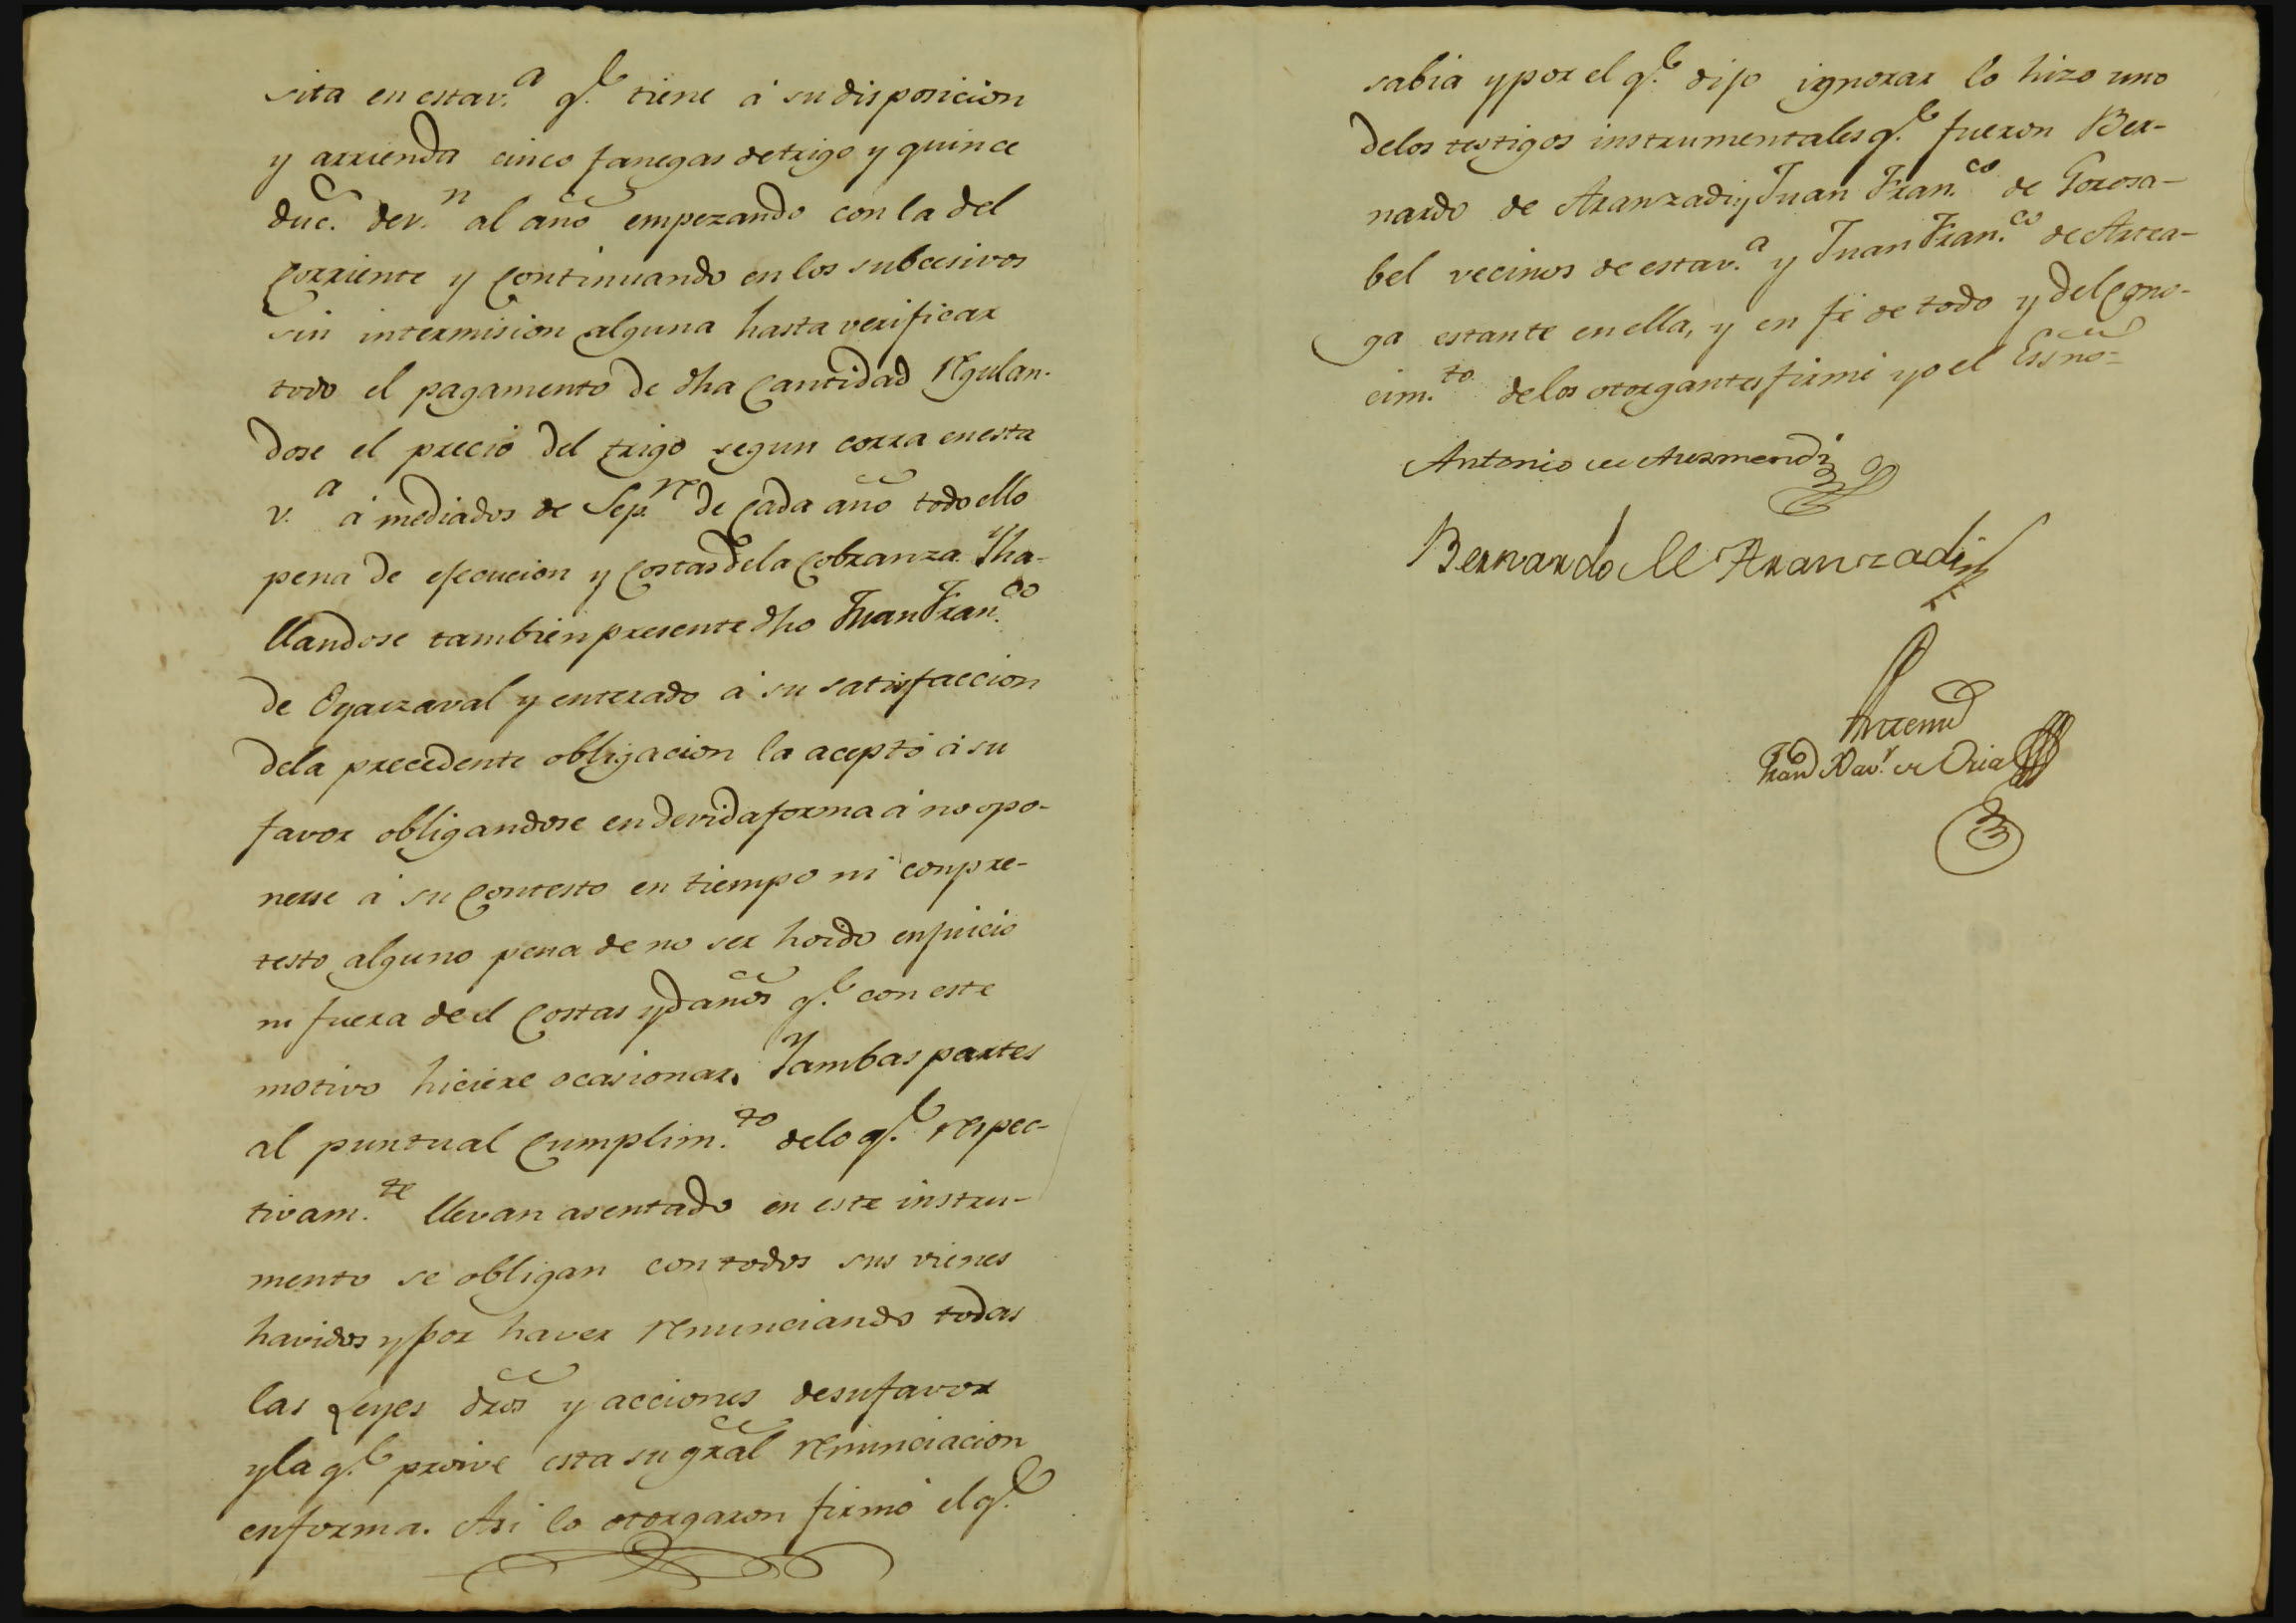 sita en estav.ª q.e tiene á su disposicion
y arrienda cinco fanegas de trigo y quince
duc.s de v.n al año empezando con la del
corriente y continuando en los subcesivos
sin intermision alguna hasta verificar
todo el pagamento de dha cantidad regulan-
dose el precio del trigo segun corra en esta
v.ª á mediados de Sep.re de cada año todo ello
pena de efecucion y costas de la cobranza. Yha-
llandose tambien presente dho Juan Fran.co
de Oyarzaval y enterado á su satisfaccion
dela precedente obligacion la aceptó á su
favor obligandose en devida forma á no opo-
nerse á su contesto en tiempo ni con pre-
testo alguno pena de no ser hoido en juicio
ni fuera de el costas y daños q.e con este
motivo hiciere ocasionar. Y ambas partes
al puntual cumplim.to delo q.e respec-
tivam.te llevan asentado en este instru-
mento se obligan con todos sus vienes
havidos y por haver renunciando todas
las Leyes dros y acciones desu favor
y la q.e proive esta su gral renunciacion
en forma. Asi lo otorgaron firmó el q.e
sabia y por el q.e dijo ignorar lo hizo uno
delos testigos instrumentales q.e fueron Ber-
nardo de Aranzadi y Juan Fran.co de Gorosa-
bel vecinos de estav.ª y Juan Fran.co de Artea-
ga estante en ella, y en fé de todo y del cono-
cim.to delos otorgantes firmé yo el Essno=
Antonio de
Bernardo de Aranzadi
Ante mi
Fran.co Xav.r de Oria